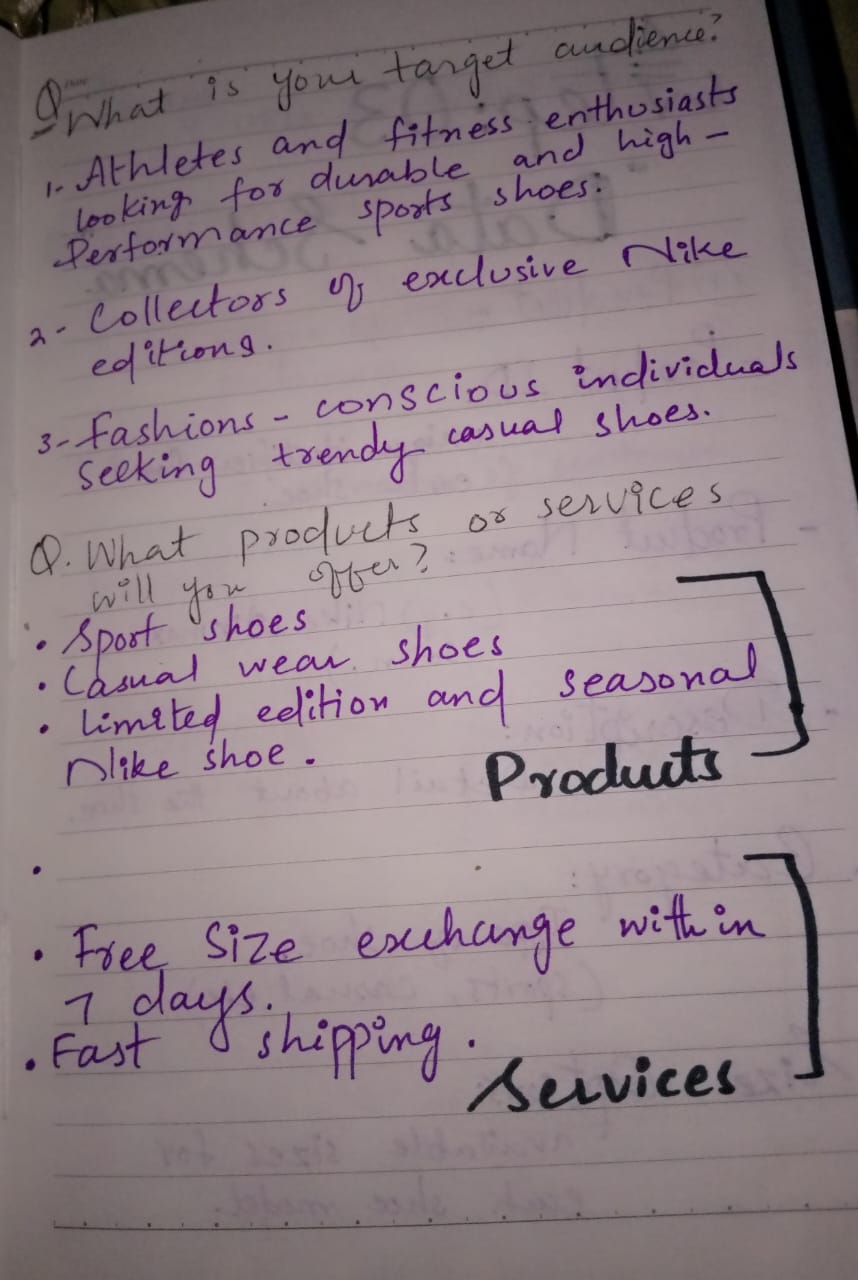 Q What is your target audience?
1- Athletes and fitness enthusiasts
looking for durable and high-
Performance sports shoes.
2- Collectors of exclusive Nike
editions.
3- Fashions - conscious individuals
Seeking trendy casual shoes.
Q. What products or services
will you offer?
• Sport shoes
• Casual wear shoes
• limited edition and seasonal
Nike shoe.
Products
•
• Free Size exchange within
7 days.
• Fast shipping.
Services